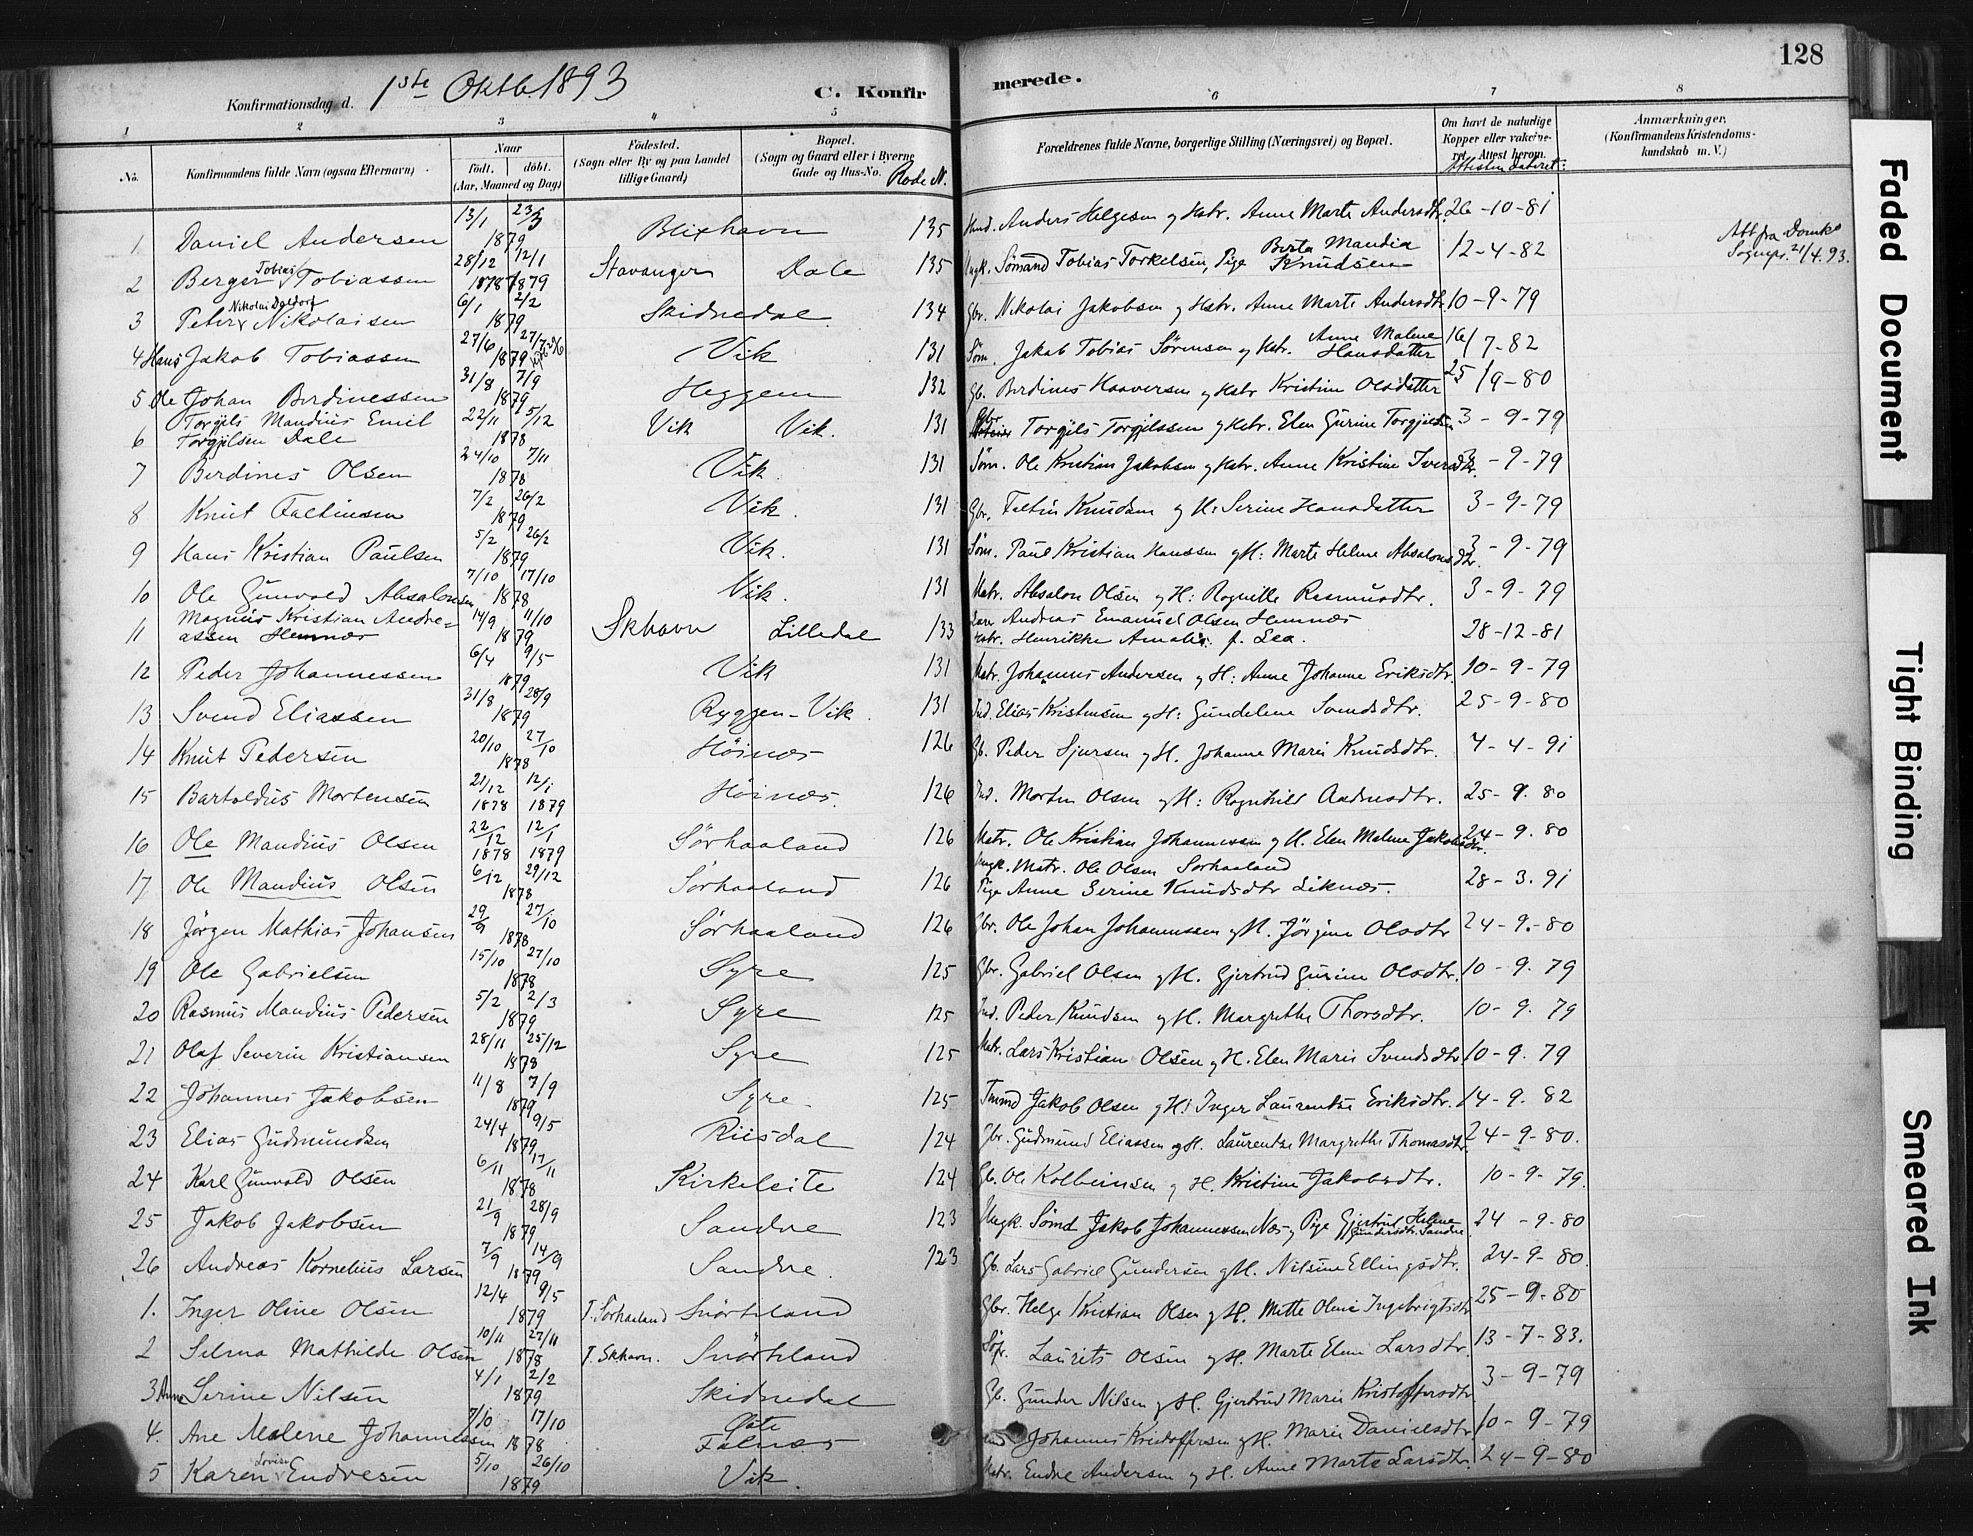 128
Konfirmationsdag d. 1ste Oktb. 1893
C. Konfirmerede.
1 2 3 4 5 6 7 8
No. Konfirmandens fulde Navn (ogsaa Efternavn) Naar født. døbt. (Aar, Maaned og Dag) Fødested. (Sogn eller By og paa Landet tillige Gaard) Bopæl. (Sogn og Gaard eller i Byerne Gade og Hus-No. Rode N. Forældrenes fulde Navne, borgerlige Stilling (Næringsvei) og Bopæl. Om havt de naturlige Kopper eller vakcineret. Attest herom. Attesten dateret: Anmærkninger. (Konfirmandens Kristendomskundskab m. V.)
1. Daniel Andersen 13/1 23/3 1879 Blixhavn 135 Anders Helgesen og Hstr. Anne Marte Andersdtr. 26-10-81
2 Berger Tobias Tobiassen 28/12 1878 12/1 1879 Stavanger Dale 135 Ungk. Sømand Tobias Torkelsen, Pige Berta Mandia Knudsen 12-4-82 Att fra Domk. Sognepr. 21/4.93.
3 Peter Nikolai Daldorf Nikolaisen 6/1 2/2 1879 Skidnedal 134 Gbr. Nikolai Jakobsen og Hstr. Anne Marte Andersdtr. 10-9-79
4 Hans Jakob Tobiassen 27/6 27/7 1879 Vik 131 Søm. Jakob Tobias Sørensen og Hstr. Anne Malene Hansdatter 16/7-82
5 Ole Johan Berdinessen 31/8 7/9 1879 Heggem 132 Gb. Berdines Haaversen og Hstr Kristine Olsdatter 25/9-80
6 Torgils Mandius Emil Torgilsen Dale 22/11 5/12 1878 Vik Vik. 131 Gbr. Torgils Torgilssen og Hstr. Elen Gurine Torgilsen 3-9-79
7 Berdines Olsen 24/10 7/11 1878 Vik 131 Søm. Ole Kristian Jakobsen og Hstr. Anne Kristine Iversdtr. 3-9-79
8 Knut Faltinsen 7/2 26/2 1879 Vik. 131 Gbr. Faltin Knudsen og H: Serine Hansdatter 3-9-79
9 Hans Kristian Paulsen 5/2 26/2 1879 Vik. 131 Søm. Paul Kristian Hanssen og H: Marte Helene Absalonsdtr. 3-9-79
10 Ole Gunvald Absalonsen 7/10 17/10 1878 Vik. 131 Matr. Absalon Olsen og H: Ragnille Rasmusdtr. 3-9-79
11 Magnus Kristian Andreassen Hemnæs 14/9 11/10 1879 Skhavn Lilledal 133 Andreas Emanuel Olsen Hemnæs Hstr. Henrikke Amalia f. Lea. 28-12-81
12 Peder Johannessen 6/4 9/5 1879 Vik 131 Matr. Johannes Andersen og H: Anne Johanne Eriksdtr. 10-9-79
13 Svend Eliassen 31/8 28/9 1879 Ryggen-Vik. 131 Ind. Elias Kristensen og H: Gundelene Svendsdtr. 25-9-80
14 Knut Pedersen 20/10 27/10 1878 Høinæs 126 Gb. Peder Sjursen og H. Johanne Marie Knudsdtr. 4-4-91
15 Bartoldus Mortensen 21/12 1878 12/1 1879 Høinæs. 126 Ind. Morten Olsen og H: Ragnhild Andreasdtr. 25-9.80
16 Ole Mandius Olsen 22/12 1878 12/1 1879 Sørhaaland 126 Matr. Ole Kristian Johannessen og H. Elen Malene Jakobsdtr. 24-9.80
17 Ole Mandius Olsen 6/12 29/12 1878 Sørhaaland 126 Ungk. Matr. Ole Olsen Sørhaaland Pige Anne Serine Knudsdtr Liknæs. 28-3.91
18 Jørgen Mathias Johansen 29/9 27/10 1878 Sørhaaland 126 Gbr. Ole Johan Johannessen og H. Jørgine Olsdtr 24-9.-80
19 Ole Gabrielsen 15/10 27/10 1878 Syre 125 Gbr. Gabriel Olsen og H. Gjertrud Gurine Olsdtr. 10-9.79
20 Rasmus Mandius Pedersen 5/2 2/3 1879 Syre 125 Ind. Peder Knudsen og H. Margrethe Thorsdtr. 10-9.79
21 Olaf Severin Kristiansen 28/11 25/12 1878 Syre 125 Matr. Lars Kristian Olsen og H. Elen Marie Svendsdtr. 10-9.79
22 Johannes Jakobsen 11/8 7/9 1879 Syre. 125 Tmmd Jakob Olsen og H: Inger Laurentse Eriksdtr. 14-9.82
23 Elias Gudmundsen 24/4 9/5 1879 Riisdal 124 Gbr. Gudmund Eliassen og H. Laurentse Margrethe Thomasdtr 24-9-80.
24 Karl Gunvald Olsen 6/11 17/11 1878 Kirkeleite 124 Gb. Ole Kolbeinsen og H. Kristine Jakobsdtr. 10-9-79.
25 Jakob Jakobsen 21/9 28/9 1879 Sandve 123 Ungk. Sømd Jakob Johannessen Næs, Pige Gjertrud Helene Gundersdtr. Sandve 24-9-80
26 Andreas Kornelius Larsen 7/9 14/9 1879 Sandve. 123 Gb. Lars Gabriel Gundersen og H. Nilsine Ellingsdtr. 24-9-80.
1. Inger Oline Olsen 12/4 9/5 1879 T. Sørhaaland Snørteland Gbr. Helge Kristian Olsen og H. Mette Oline Ingebrigtsdtr 25-9-80
2 Selma Mathilde Olsen 10/11 27/11 1878 T. Skhavn. Snørteland Laurits Olsen og H. Marte Elene Larsdtr. 13-7-83.
3 Anna Serine Nilsen 4/1 2/2 1879 Skidnedal Gb. Gunder Nilsen og H. Gjertrud Marie Kristoffersdtr 3-9-79
4. Ane Malene Johannessen 7/10 17/10 1878. Falnæs Johannes Kristoffersen og H. Marie Danielsdtr. 10-9-79
5 Karen Lovise Endresen 5/10 26/10 1879 Vik. Matr. Endre Andersen og H. Anne Marte Larsdtr. 24-9-80
Faded Document
Tight Binding
Smeared Ink